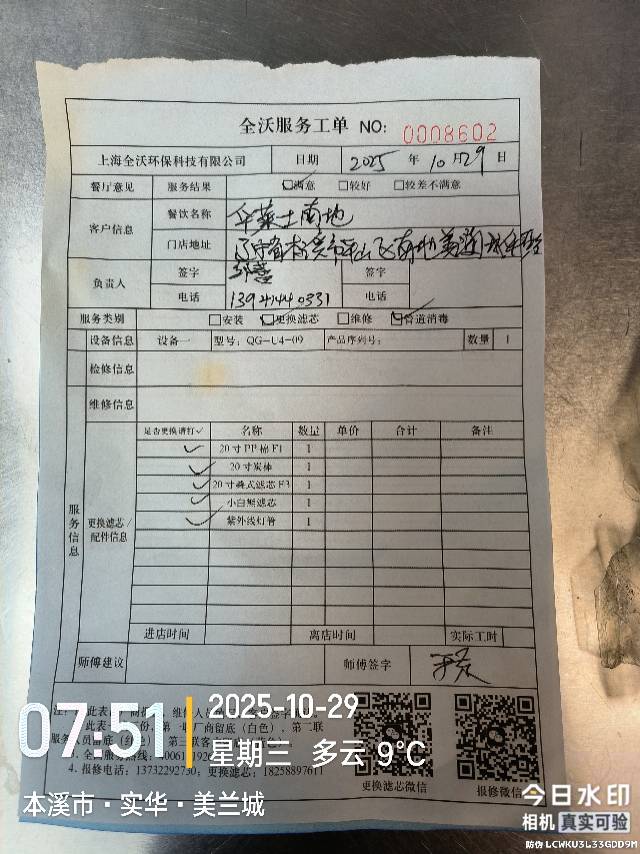 全沃服务工单 NO: 0008602
上海全沃环保科技有限公司 日期 2025 年 10 月 29 日
餐厅意见 服务结果 ☑满意 □较好 □较差不满意
客户信息 餐饮名称 华莱士南地
门店地址 辽宁省本溪市平山区南地
负责人 签字 签字
电话 电话
服务类别 □安装 ☑更换滤芯 □维修 ☑管道消毒
设备信息 设备一 型号: QG-U4-09 产品序列号: 数量 1
检修信息
维修信息
服务信息 更换滤芯/配件信息
是否更换请打✓ 名称 数量 单价 合计 备注
✓ 20寸PP棉F1 1
✓ 20寸炭棒 1
✓ 20寸叠式滤芯F3 1
✓ 小白熊滤芯 1
✓ 紫外线灯管 1
进店时间 离店时间 实际工时
师傅建议 师傅签字
4. 报修电话: 13732292750; 更换滤芯: 18258897611
更换滤芯微信 报修微信
07:51
2025-10-29
星期三 多云 9°C
本溪市·实华·美兰城
今日水印
相机 真实可验
防伪 LCWKU3L33GDD9M